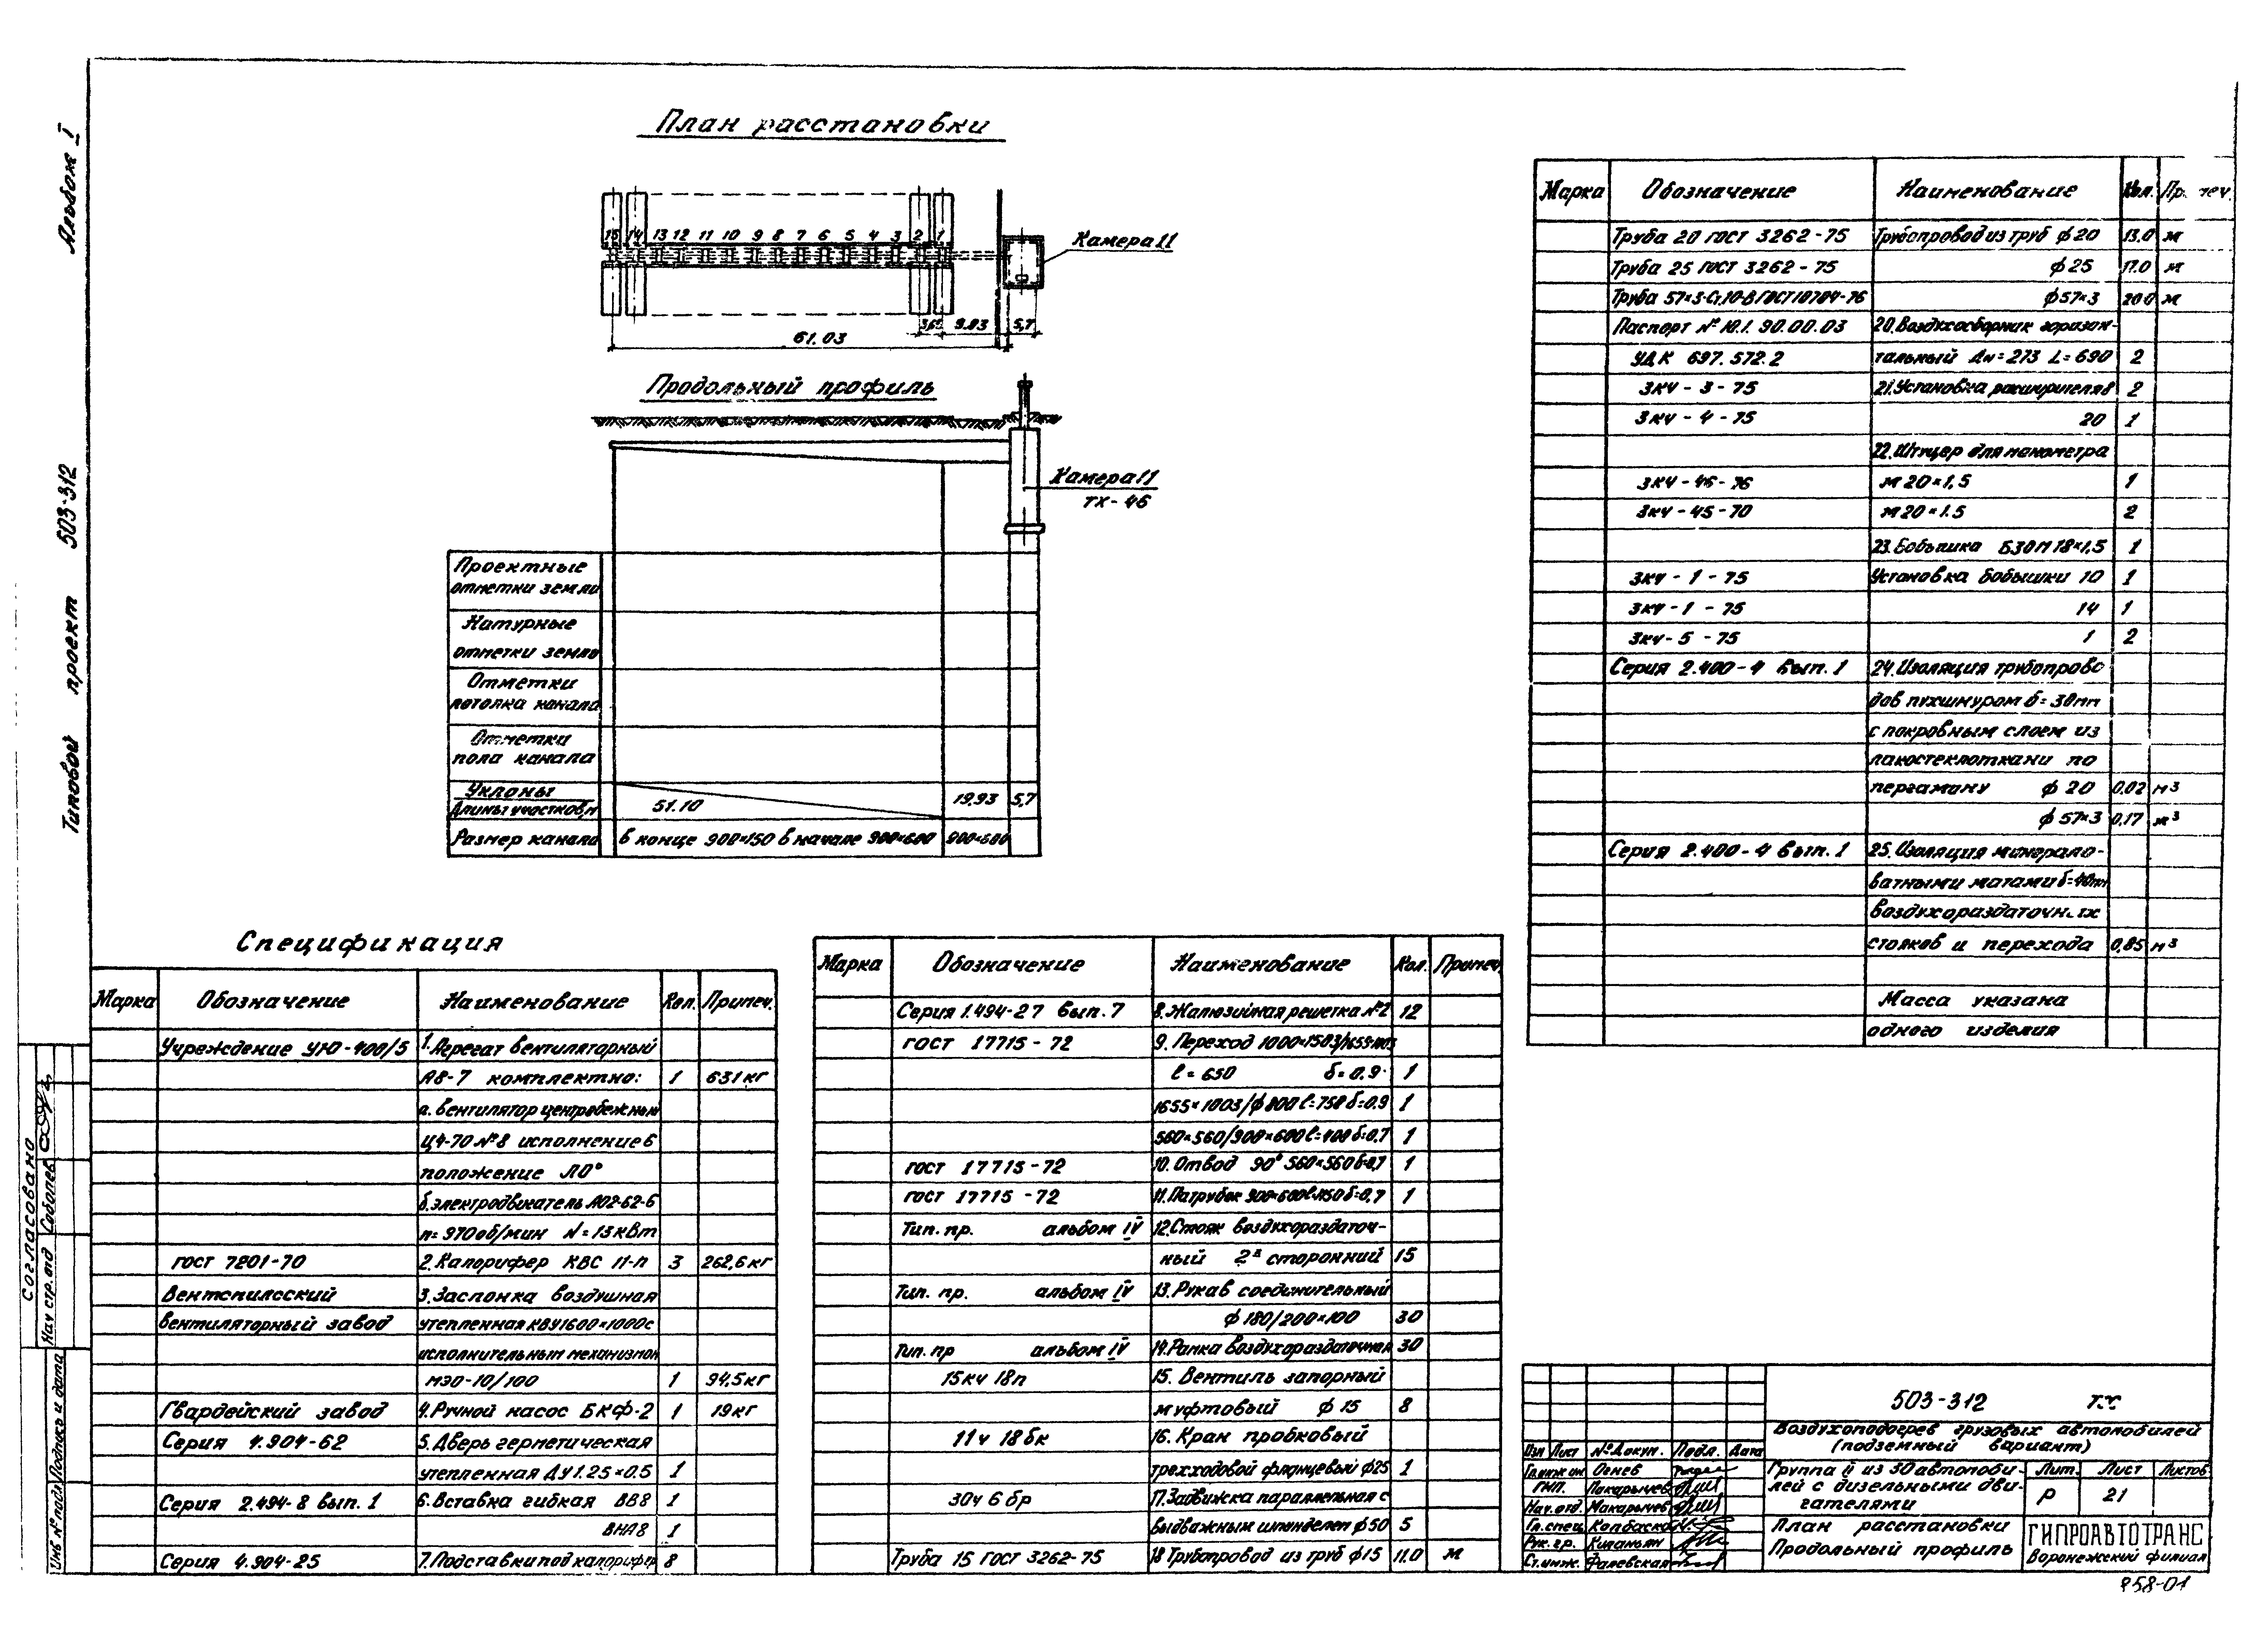 Альбом I
Типовой проект 503-312
План расстановки
15 14 13 12 11 10 9 8 7 6 5 4 3 2 1
Камера 11
3,65 9.93 5,7
61.03
Продольный профиль
Камера 11
ТХ-46
Проектные
отметки земли
Натурные
отметки земли
Отметки
потолка канала
Отметки
пола канала
Уклоны
Длины участков, м 51.10 19.93 5,7
Размер канала в конце 900×150 в начале 900×600 900×600
Спецификация
Марка Обозначение Наименование Кол. Примеч.
Учреждение УЮ-400/5 1. Агрегат вентиляторный
А8-7 комплектно: 1 631 кг
а. вентилятор центробежный
Ц4-70 №8 исполнение 6
положение Л0°
б. электродвигатель АО2-62-6
n=970 об/мин N=13кВт
ГОСТ 7201-70 2. Калорифер КВС 11-П 3 262,6 кг
Вентспилсский 3. Заслонка воздушная
вентиляторный завод утепленная КВУ1600×1000с
исполнительным механизмом
МЭО-10/100 1 94,5 кг
Гвардейский завод 4. Ручной насос БКФ-2 1 19 кг
Серия 4.904-62 5. Дверь герметическая
утепленная ДУ 1.25×0.5 1
Серия 2.494-8 вып. 1 6. Вставка гибкая ВВ8 1
ВНА8 1
Серия 4.904-25 7. Подставки под калорифер 8
Марка Обозначение Наименование Кол. Примеч.
Серия 1.494-27 вып. 7 8. Жалюзийная решетка №2 12
ГОСТ 17715-72 9. Переход 1000×1503/1655×1003
ℓ=650 δ=0.9 1
1655×1003/ф800 ℓ=758 δ=0.9 1
560×560/900×600 ℓ=400 δ=0.7 1
ГОСТ 17715-72 10. Отвод 90° 560×560 δ=0,7 1
ГОСТ 17715-72 11. Патрубок 900×600 ℓ=1150 δ=0,7 1
Тип. пр. альбом IV 12. Стояк воздухораздаточ-
ный 2х сторонний 15
Тип. пр. альбом IV 13. Рукав соединительный
ф 180/200×100 30
Тип. пр альбом IV 14. Рамка воздухораздаточная 30
15кч 18п 15. Вентиль запорный
муфтовый ф 15 8
11ч 18бк 16. Кран пробковый
трехходовой фланцевый ф25 1
30ч 6 бр 17. Задвижка параллельная с
выдвижным шпинделем ф50 5
Труба 15 ГОСТ 3262-75 18 Трубопровод из труб ф15 11.0 м
Марка Обозначение Наименование Кол. Примеч.
Труба 20 ГОСТ 3262-75 Трубопровод из труб ф20 13.0 м
Труба 25 ГОСТ 3262-75 ф25 17.0 м
Труба 57×3-Ст.10-В ГОСТ 10704-76 ф57×3 20.0 м
Паспорт № 10.1. 90.00.03 20. Воздухосборник горизон-
УДК 697.572.2 тальный Дн=273 L=690 2
ЗКЧ-3-75 21. Установка расширителя 8 2
ЗКЧ-4-75 20 1
22. Штуцер для манометра
ЗКЧ-46-76 М20×1,5 1
ЗКЧ-45-70 М20×1.5 2
23. Бобышка БЗОМ 18×1,5 1
ЗКЧ-1-75 Установка бобышки 10 1
ЗКЧ-1-75 14 1
ЗКЧ-5-75 1 2
Серия 2.400-4 вып. 1 24. Изоляция трубопрово
дов пухшнуром δ=30мм
с покровным слоем из
лакостеклоткани по
пергаману ф 20 0,02 м³
ф 57×3 0,17 м³
Серия 2.400-4 вып. 1 25. Изоляция минерало-
ватными матами δ=40мм
воздухораздаточных
стояков и перехода 0,85 м³
Масса указана
одного изделия
503-312 ТХ
Воздухоподогрев грузовых автомобилей
(подземный вариант)
Изм Лист № Докум. Подп. Дата
Гл.инж.ин Огнев
ГИП. Макарычев
Нач.отд. Макарычев
Гл.спец.
Рук.гр.
Ст.инж. Фалевская
Группа II из 30 автомоби-
лей с дизельными дви-
гателями
Лит. Лист Листов
Р 21
План расстановки
Продольный профиль
ГИПРОАВТОТРАНС
Воронежский филиал
858-01
Согласовано
Нач стр. отд Соболев
Инв № подл Подпись и дата